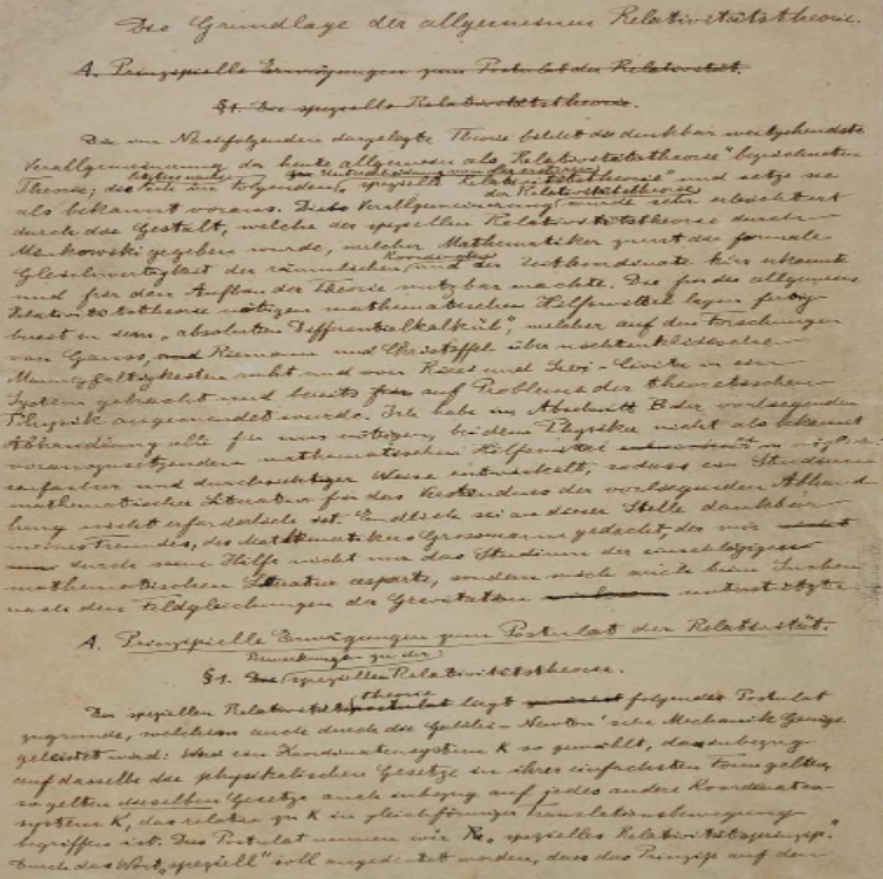 Die Grundlage der allgemeinen Relativitätstheorie.
A. Prinzipielle Erwägungen zum Postulat der Relativität.
§1. Die spezielle Relativitätstheorie.
Die im Nachfolgenden dargelegte Theorie bildet die denkbar weitgehendste
Verallgemeinerung der heute allgemein als „Relativitätstheorie" bezeichneten
letztere nenne zur Unterscheidung von der ersteren
Theorie; die ich im Folgenden „spezielle Relativitätstheorie" und setze sie
der Relativitätstheorie
als bekannt voraus. Diese Verallgemeinerung wurde sehr erleichtert
durch die Gestalt, welche der speziellen Relativitätstheorie durch
Minkowski gegeben wurde, welcher Mathematiker zuerst die formale
Koordinaten
Gleichwertigkeit der räumlichen und der Zeitkoordinate klar erkannte
und für den Aufbau der Theorie nutzbar machte. Die für die allgemeine
Relativitätstheorie nötigen mathematischen Hilfsmittel lagen fertig
bereit in dem „absoluten Differentialkalkül", welcher auf den Forschungen
von Gauss, und Riemann und Christoffel über nichteuklidische
Mannigfaltigkeiten ruht und von Ricci und Levi-Civita in ein
System gebracht und bereits auf Probleme der theoretischen
Physik angewendet wurde. Ich habe im Abschnitt B der vorliegenden
Abhandlung alle für uns nötigen, bei dem Physiker nicht als bekannt
vorauszusetzenden mathematischen Hilfsmittel in möglichst
einfacher und durchsichtiger Weise entwickelt, sodass ein Studium
mathematischer Literatur für das Verständnis der vorliegenden Abhand-
lung nicht erforderlich ist. Endlich sei an dieser Stelle dankbar
meines Freundes, des Mathematikers Grossmann gedacht, der mir
durch seine Hilfe nicht nur das Studium der einschlägigen
mathematischen Literatur ersparte, sondern mich auch beim Suchen
nach den Feldgleichungen der Gravitation unterstützte.
A. Prinzipielle Erwägungen zum Postulat der Relativität.
Bemerkungen zu der
§1. Die speziellen Relativitätstheorie.
theorie
Der speziellen Relativitätspostulat liegt folgendes Postulat
zugrunde, welchem auch durch die Galilei-Newton'sche Mechanik Genüge
geleistet wird: Wird ein Koordinatensystem K so gewählt, dass inbezug
auf dasselbe die physikalischen Gesetze in ihrer einfachsten Form gelten,
so gelten dieselben Gesetze auch inbezug auf jedes andere Koordinaten-
system K', das relativ zu K in gleichförmiger Translationsbewegung
begriffen ist. Dies Postulat nennen wir „spezielles Relativitätsprinzip."
Durch das Wort „speziell" soll angedeutet werden, dass das Prinzip auf den